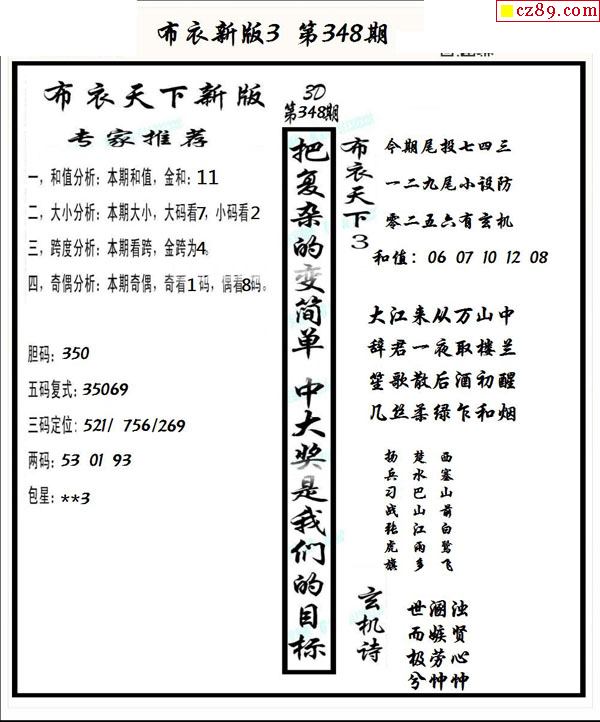 cz89.com
布衣新版3 第348期
布衣天下新版
专家推荐
一，和值分析：本期和值，金和：11
二，大小分析：本期大小，大码看7，小码看2
三，跨度分析：本期看跨，金跨为4。
四，奇偶分析：本期奇偶，奇看1码，偶看8码。
胆码：350
五码复式：35069
三码定位：521/ 756/269
两码：53 01 93
包星：**3
3D
第348期
把复杂的变简单 中大奖是我们的目标
布衣天下3
今期尾投七四三
一二九尾小设防
零二五六有玄机
和值：06 07 10 12 08
大江来从万山中
辞君一夜取楼兰
笙歌散后酒初醒
几丝柔绿乍和烟
西塞山前白鹭飞
楚水巴山江雨多
扬兵习战张虎旗
玄机诗
世溷浊
而嫉贤
极劳心
兮忡忡